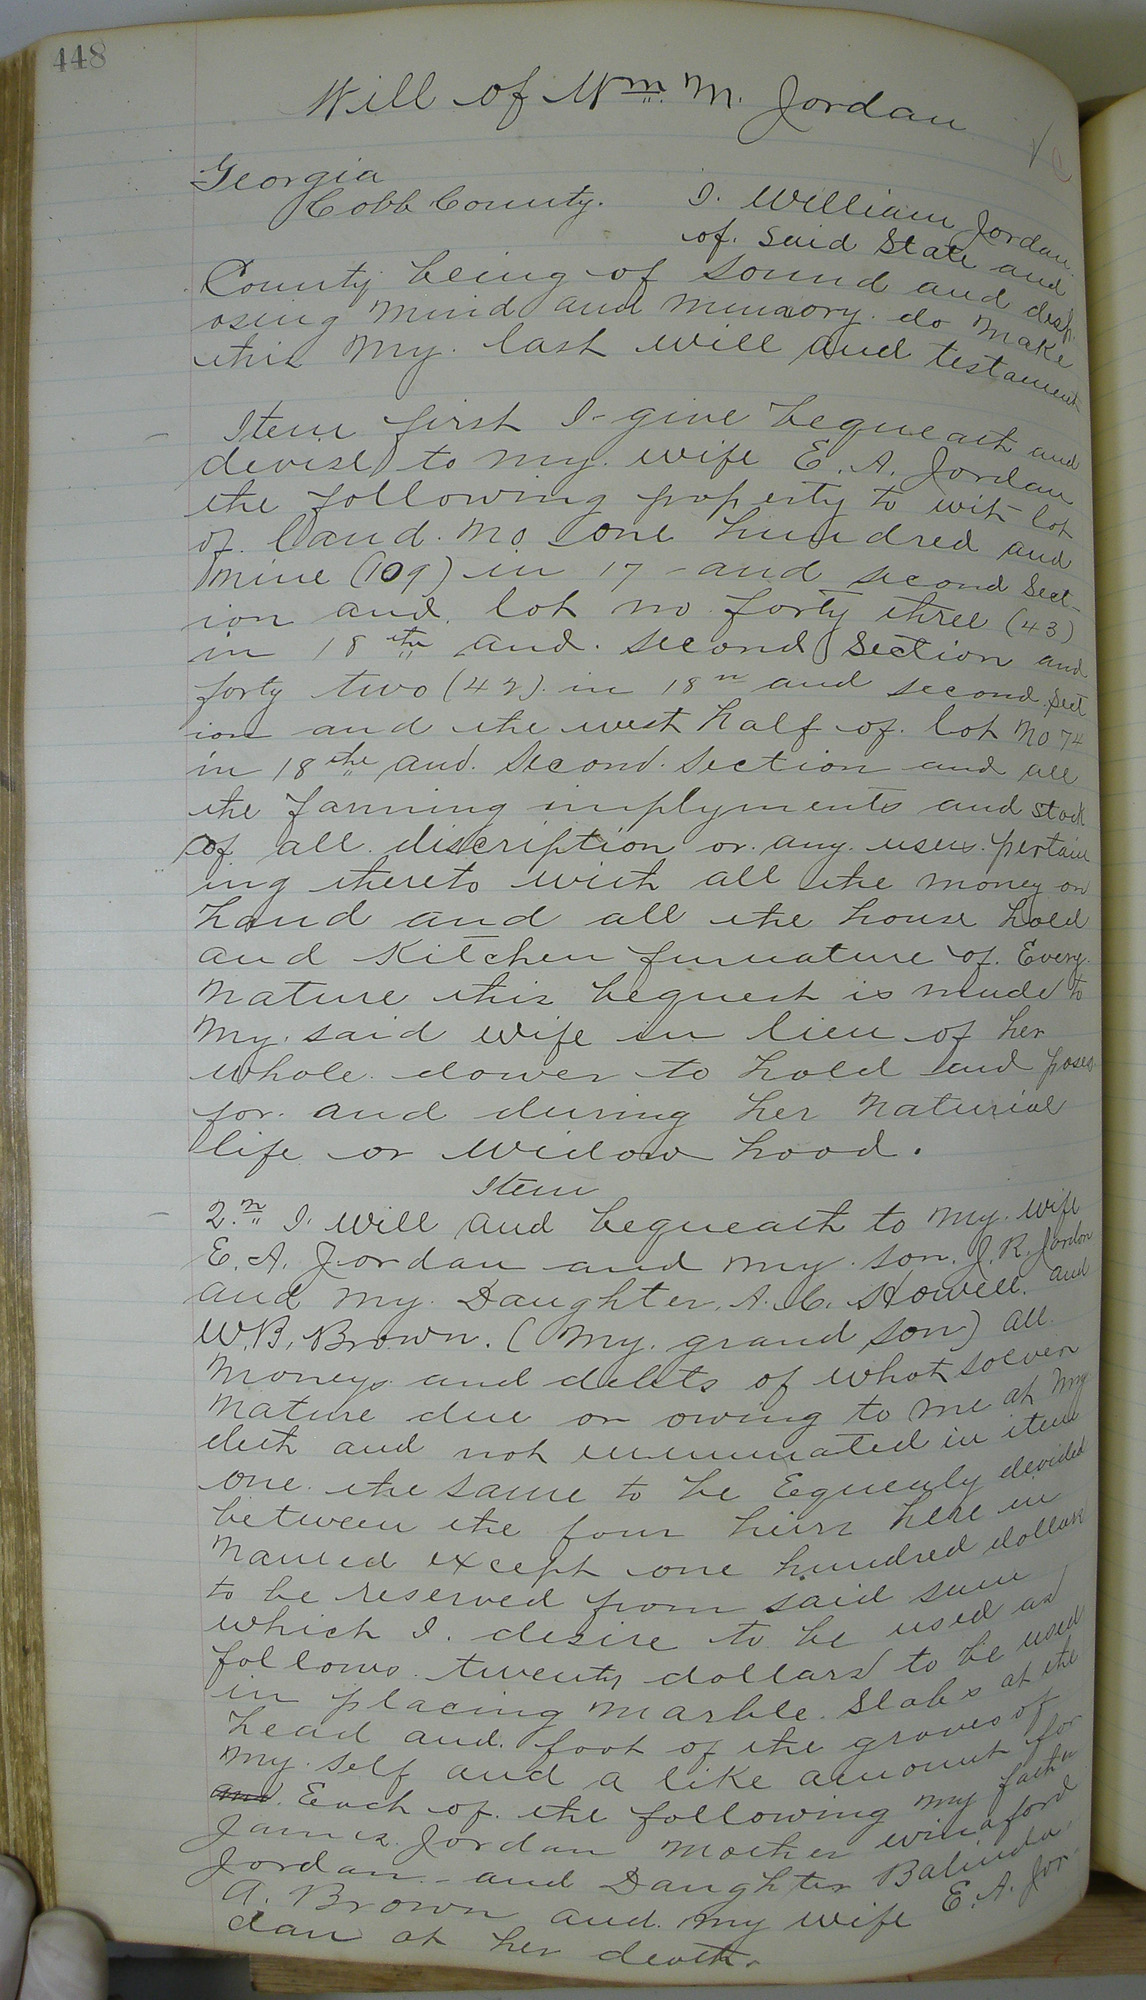 448
Will of Wm. M. Jordan
Georgia
Cobb County. I. William Jordan
of. said State and
County being of sound and disp
osing mind and memory. do make
this my. last will and testament
Item first I give bequeath and
devise to my. wife E. A. Jordan
the following property to wit lot
of. land. No one hundred and
nine (109) in 17 - and second Sect-
ion and. lot no. forty three (43)
in 18th and. second Section and
forty two (42) in 18n and second. Sect
ion and the west half of. lot No 74
in 18th and. Second. Section and all
the farming implyments and stock
of. all. discription or. any. uses. pertain
ing thereto with all the money on
hand and all the house hold
and Kitchen furnature of. Every.
nature this bequest is made to
my. said wife in lieu of her
whole. dower to hold and poses
for. and during her naturial
life or widow hood.
Item
2.n I. will and bequeath to my. wife
E. A. Jordan and my son. J. R. Jordon
and my. Daughter. A. C. Howell. and
W. B. Brown. (my. grand son) all.
moneys and debts of what soever
nature due or owing to me at my
deth and not enumnated in item
one. the same to be Equealy devided
between the four heirs here in
named except one hundred dollars
to be reserved from said sum
which I. desire to be used as
follows. twenty dollars to be used
in placing marble. Slabs at the
head and. foot of the graves of
my. self and a like amount for
and. Each of. the following my father
James. Jordan mother winaford
Jordan - and Daughter Balinda.
A. Brown and. my wife E. A. Jor-
dan at her death.